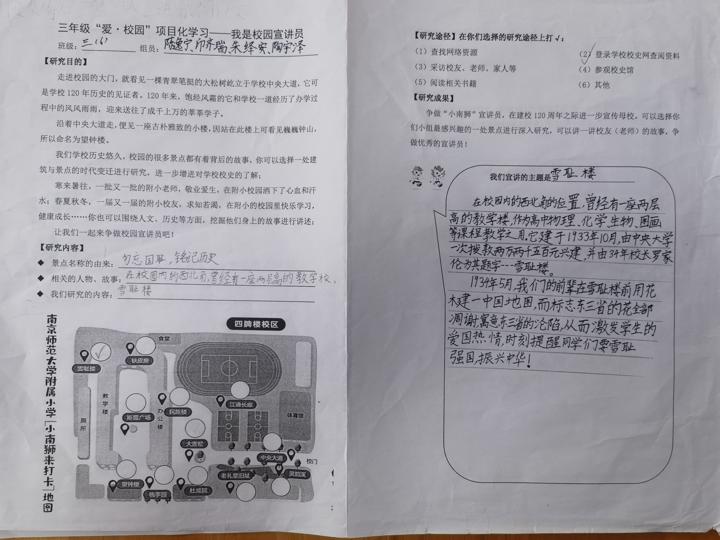 三年级“爱·校园”项目化学习——我是校园宣讲员
班级: 三(6) 组员:
【研究目的】
走进校园的大门，就看见一棵青翠笔挺的大松树屹立于学校中央大道，它可
是学校120年历史的见证者。120年来，饱经风霜的它和学校一道经历了办学过
程中的风风雨雨，迎来送往了成千上万的莘莘学子。
沿着中央大道走，便见一座古朴雅致的小楼，因站在此楼上可看见巍巍钟山，
所以命名为望钟楼。
我们学校历史悠久，校园的很多景点都有着背后的故事，你可以选择一处建
筑与景点的时代变迁进行研究，进一步增进对学校校史的了解；
寒来暑往，一批又一批的附小老师，敬业爱生，在附小校园洒下了心血和汗
水；春夏秋冬，一届又一届的附小校友，求知若渴，在附小的校园里快乐学习，
健康成长……你也可以围绕人文、历史等方面，挖掘他们身上的故事进行讲述；
让我们一起来争做校园宣讲员吧！
【研究内容】
◆ 景点名称的由来: 勿忘国耻，铭记历史
◆ 相关的人物、故事: 在校园内的西北角,曾经有一座两层高的教学校，
◆ 我们研究的内容: 雪耻楼
南京师范大学附属小学“小南狮来打卡”地图
四牌楼校区
食堂
雪耻楼
教学楼
办公楼
民族楼
江通长廊
体育馆
厕所
大雪松
中央大道
校门
望钟楼
杜威院
老礼堂旧址
【研究途径】在你们选择的研究途径上打√：
(1) 查找网络资源 (2) 登录学校校史网查阅资料
(3) 采访校友、老师、家人等 (4) 参观校史馆
(5) 阅读相关书籍 (6) 其他
【研究成果】
争做“小南狮”宣讲员，在建校120周年之际进一步宣传母校。可以选择你
们小组最感兴趣的一处景点进行深入研究，可以讲一讲校友（老师）的故事，争
做优秀的宣讲员！
我们宣讲的主题是 雪耻楼
在校园内的西北角的位置,曾经有一座两层
高的教学楼,作为高中物理、化学生物、图画
等课程教学之用。它建于1933年10月,由中央大学
一次拨款两万两千五百元兴建,并由34年校长罗家
伦为其题字——雪耻楼。
1934年5月,我们的前辈在雪耻楼前用花
木建一中国地图,而标志东三省的花全部
凋谢寓意东三省的沦陷,从而激发学生的
爱国热情,时刻提醒同学们要雪耻
强国,振兴中华!